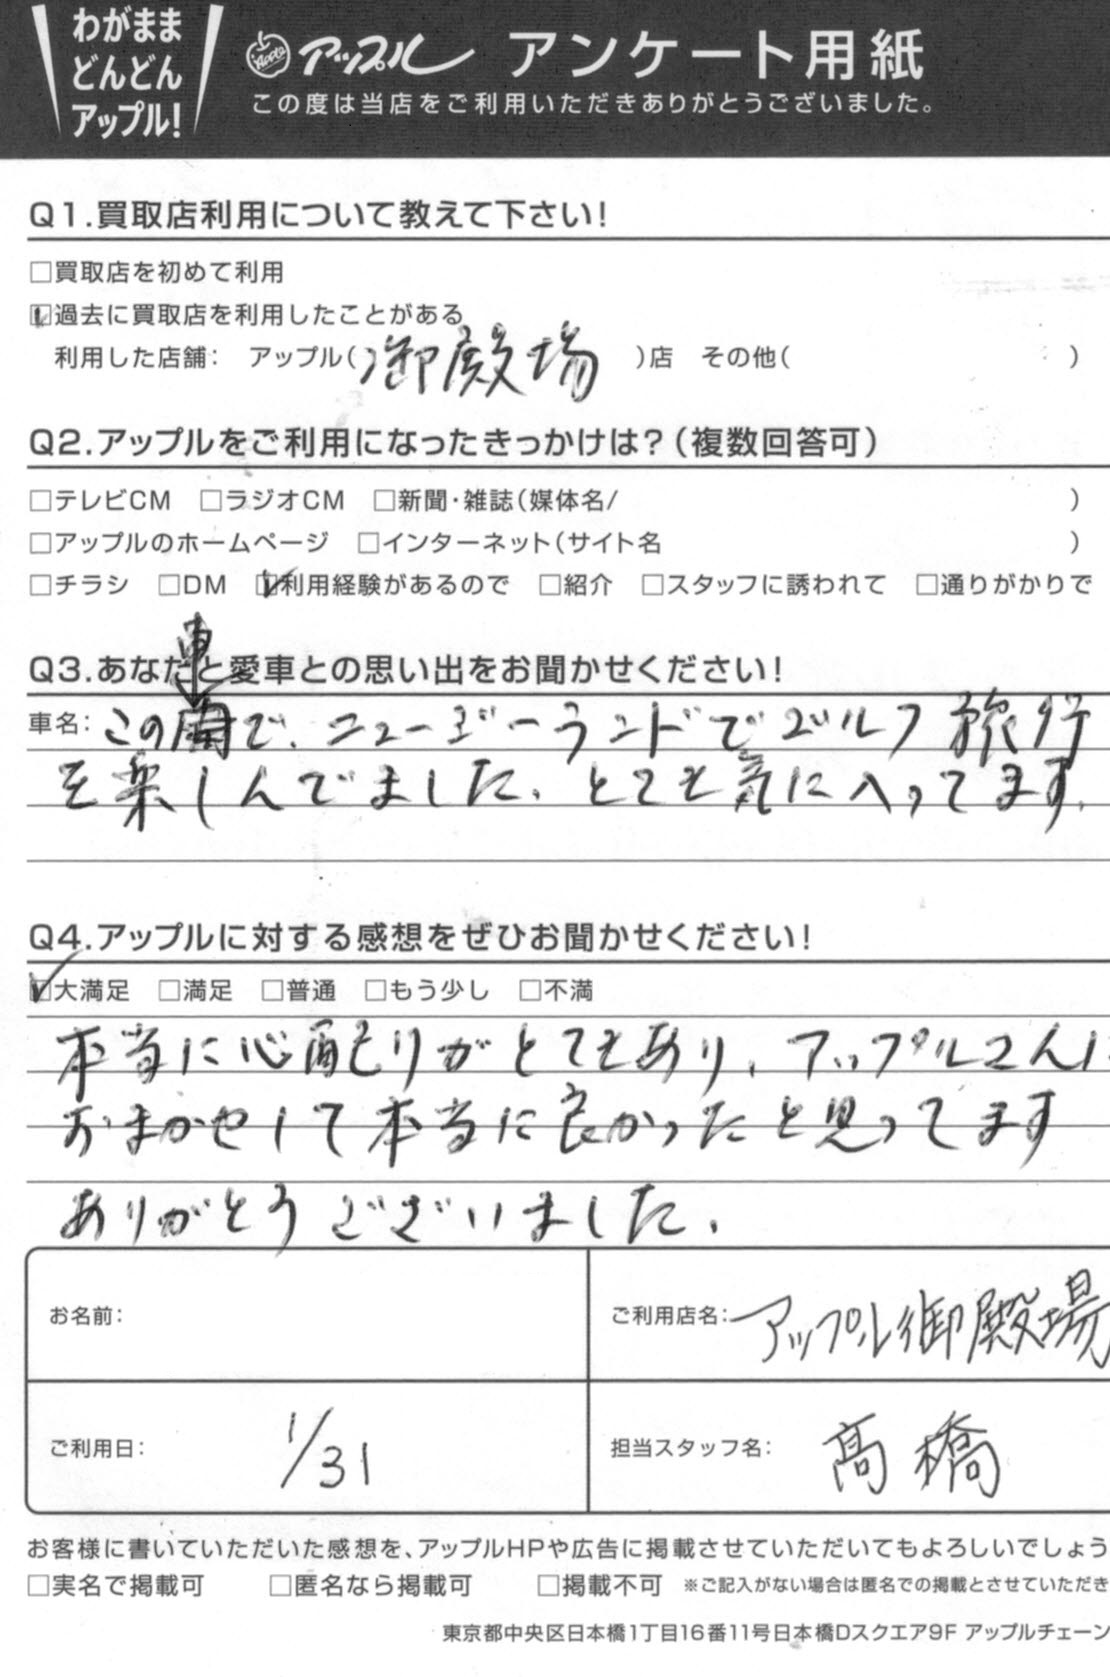 わがまま
どんどん
アップル!
Apple アップル アンケート用紙
この度は当店をご利用いただきありがとうございました。
Q1.買取店利用について教えて下さい!
□買取店を初めて利用
☑過去に買取店を利用したことがある
利用した店舗: アップル(御殿場)店 その他( )
Q2.アップルをご利用になったきっかけは?(複数回答可)
□テレビCM □ラジオCM □新聞・雑誌(媒体名/ )
□アップルのホームページ □インターネット(サイト名 )
□チラシ □DM ☑利用経験があるので □紹介 □スタッフに誘われて □通りがかりで
Q3.あなたと愛車との思い出をお聞かせください!
車
車名: この で、ニュージーランドでゴルフ旅行
を楽しんでました、とても気に入ってます、
Q4.アップルに対する感想をぜひお聞かせください!
☑大満足 □満足 □普通 □もう少し □不満
本当に心配りがとてもあり、アップルさんに
おまかせして本当に良かったと思ってます
ありがとうございました、
お名前: ご利用店名: アップル御殿場
ご利用日: 1/31 担当スタッフ名: 髙橋
お客様に書いていただいた感想を、アップルHPや広告に掲載させていただいてもよろしいでしょう
□実名で掲載可 □匿名なら掲載可 □掲載不可 ※ご記入がない場合は匿名での掲載とさせていただき
東京都中央区日本橋1丁目16番11号日本橋Dスクエア9F アップルチェーン